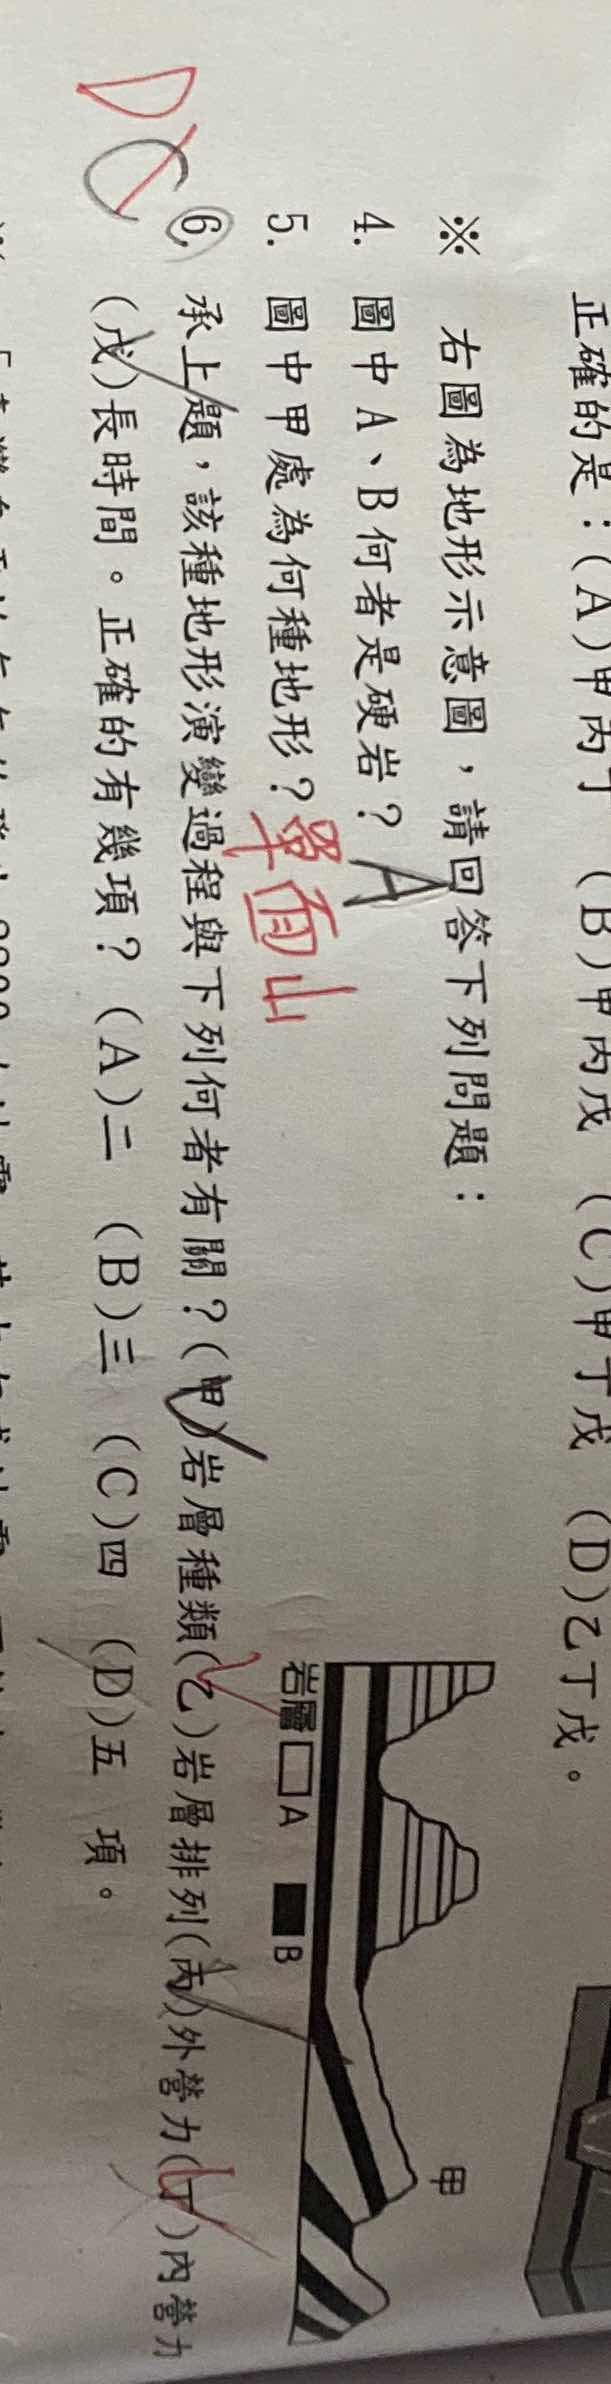 正確的是：(A)甲丙丁 (B)甲丙戊 (C)甲丁戊 (D)乙丁戊。
※ 右圖為地形示意圖，請回答下列問題：
4. 圖中A、B何者是硬岩？ A
5. 圖中甲處為何種地形？ 單面山
D C 6. 承上題，該種地形演變過程與下列何者有關？(甲)岩層種類(乙)岩層排列(丙)外營力(丁)內營力
(戊)長時間。正確的有幾項？ (A)二 (B)三 (C)四 (D)五 項。
甲
岩層 A B